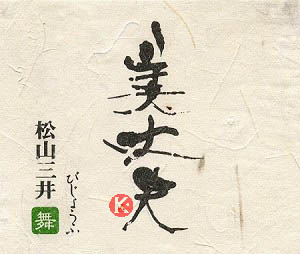 美丈夫
びじょうふ
松山三井
舞
K